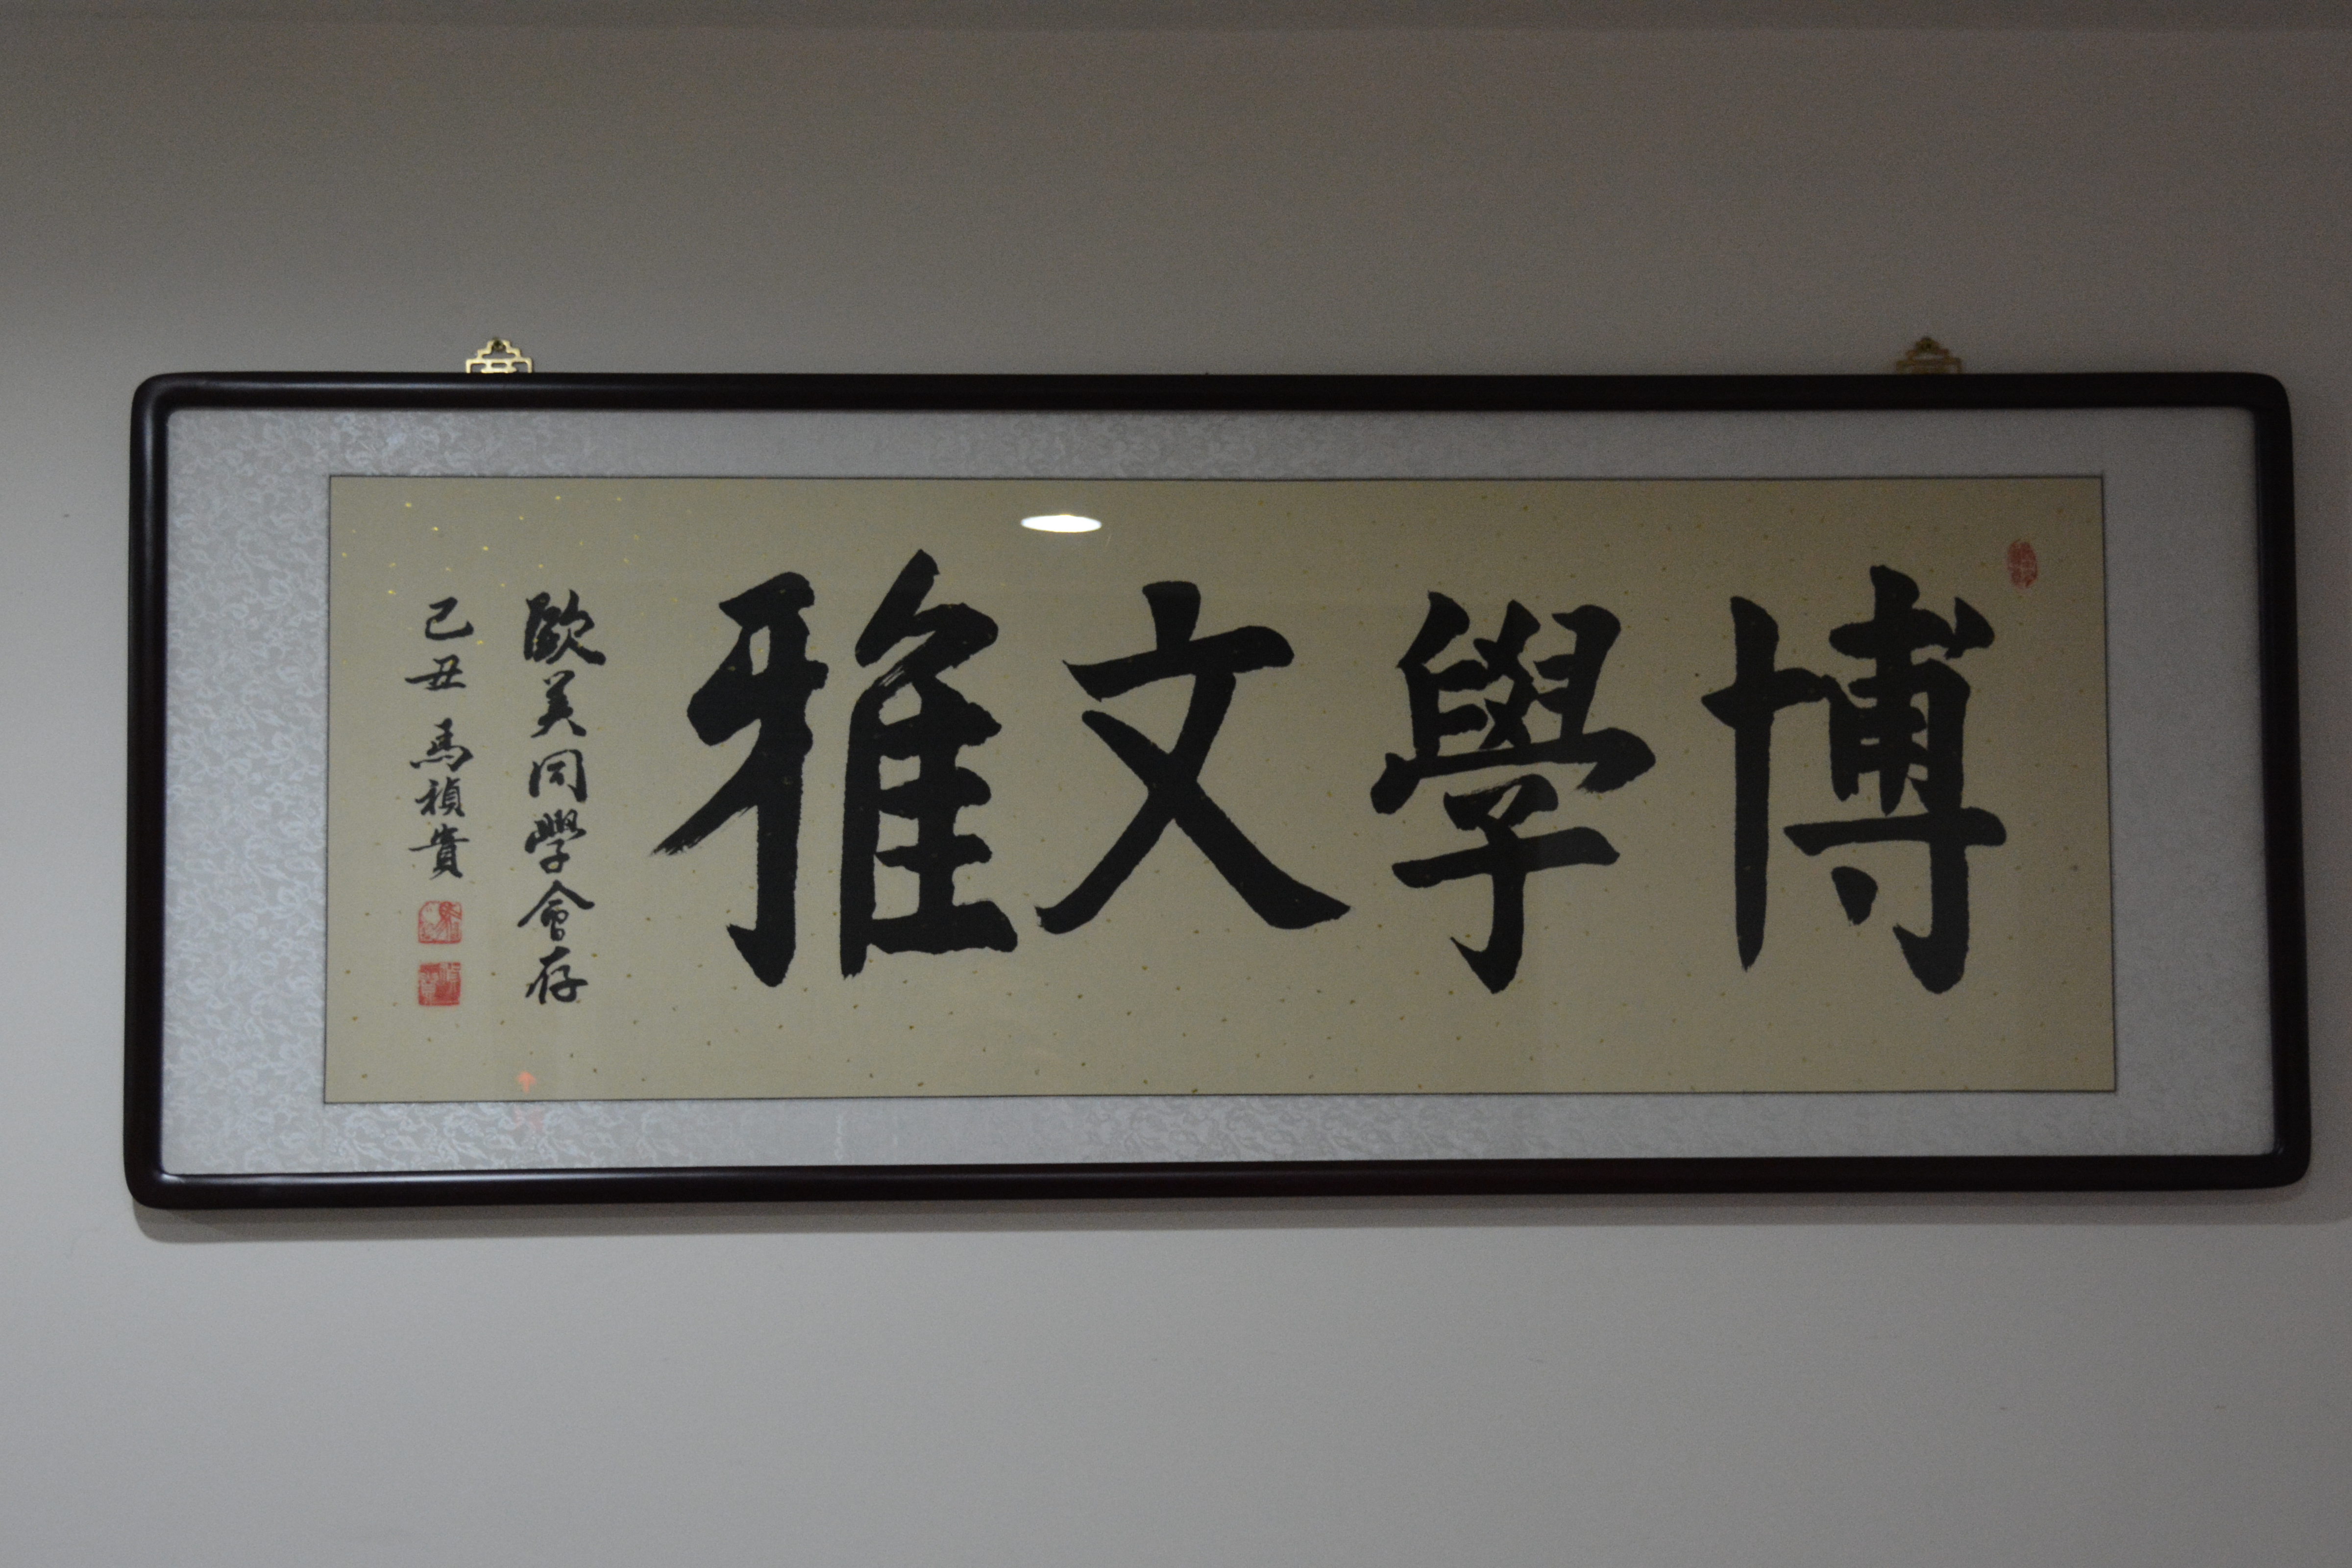 博學文雅
歐美同學會存
己丑 馬禎貴